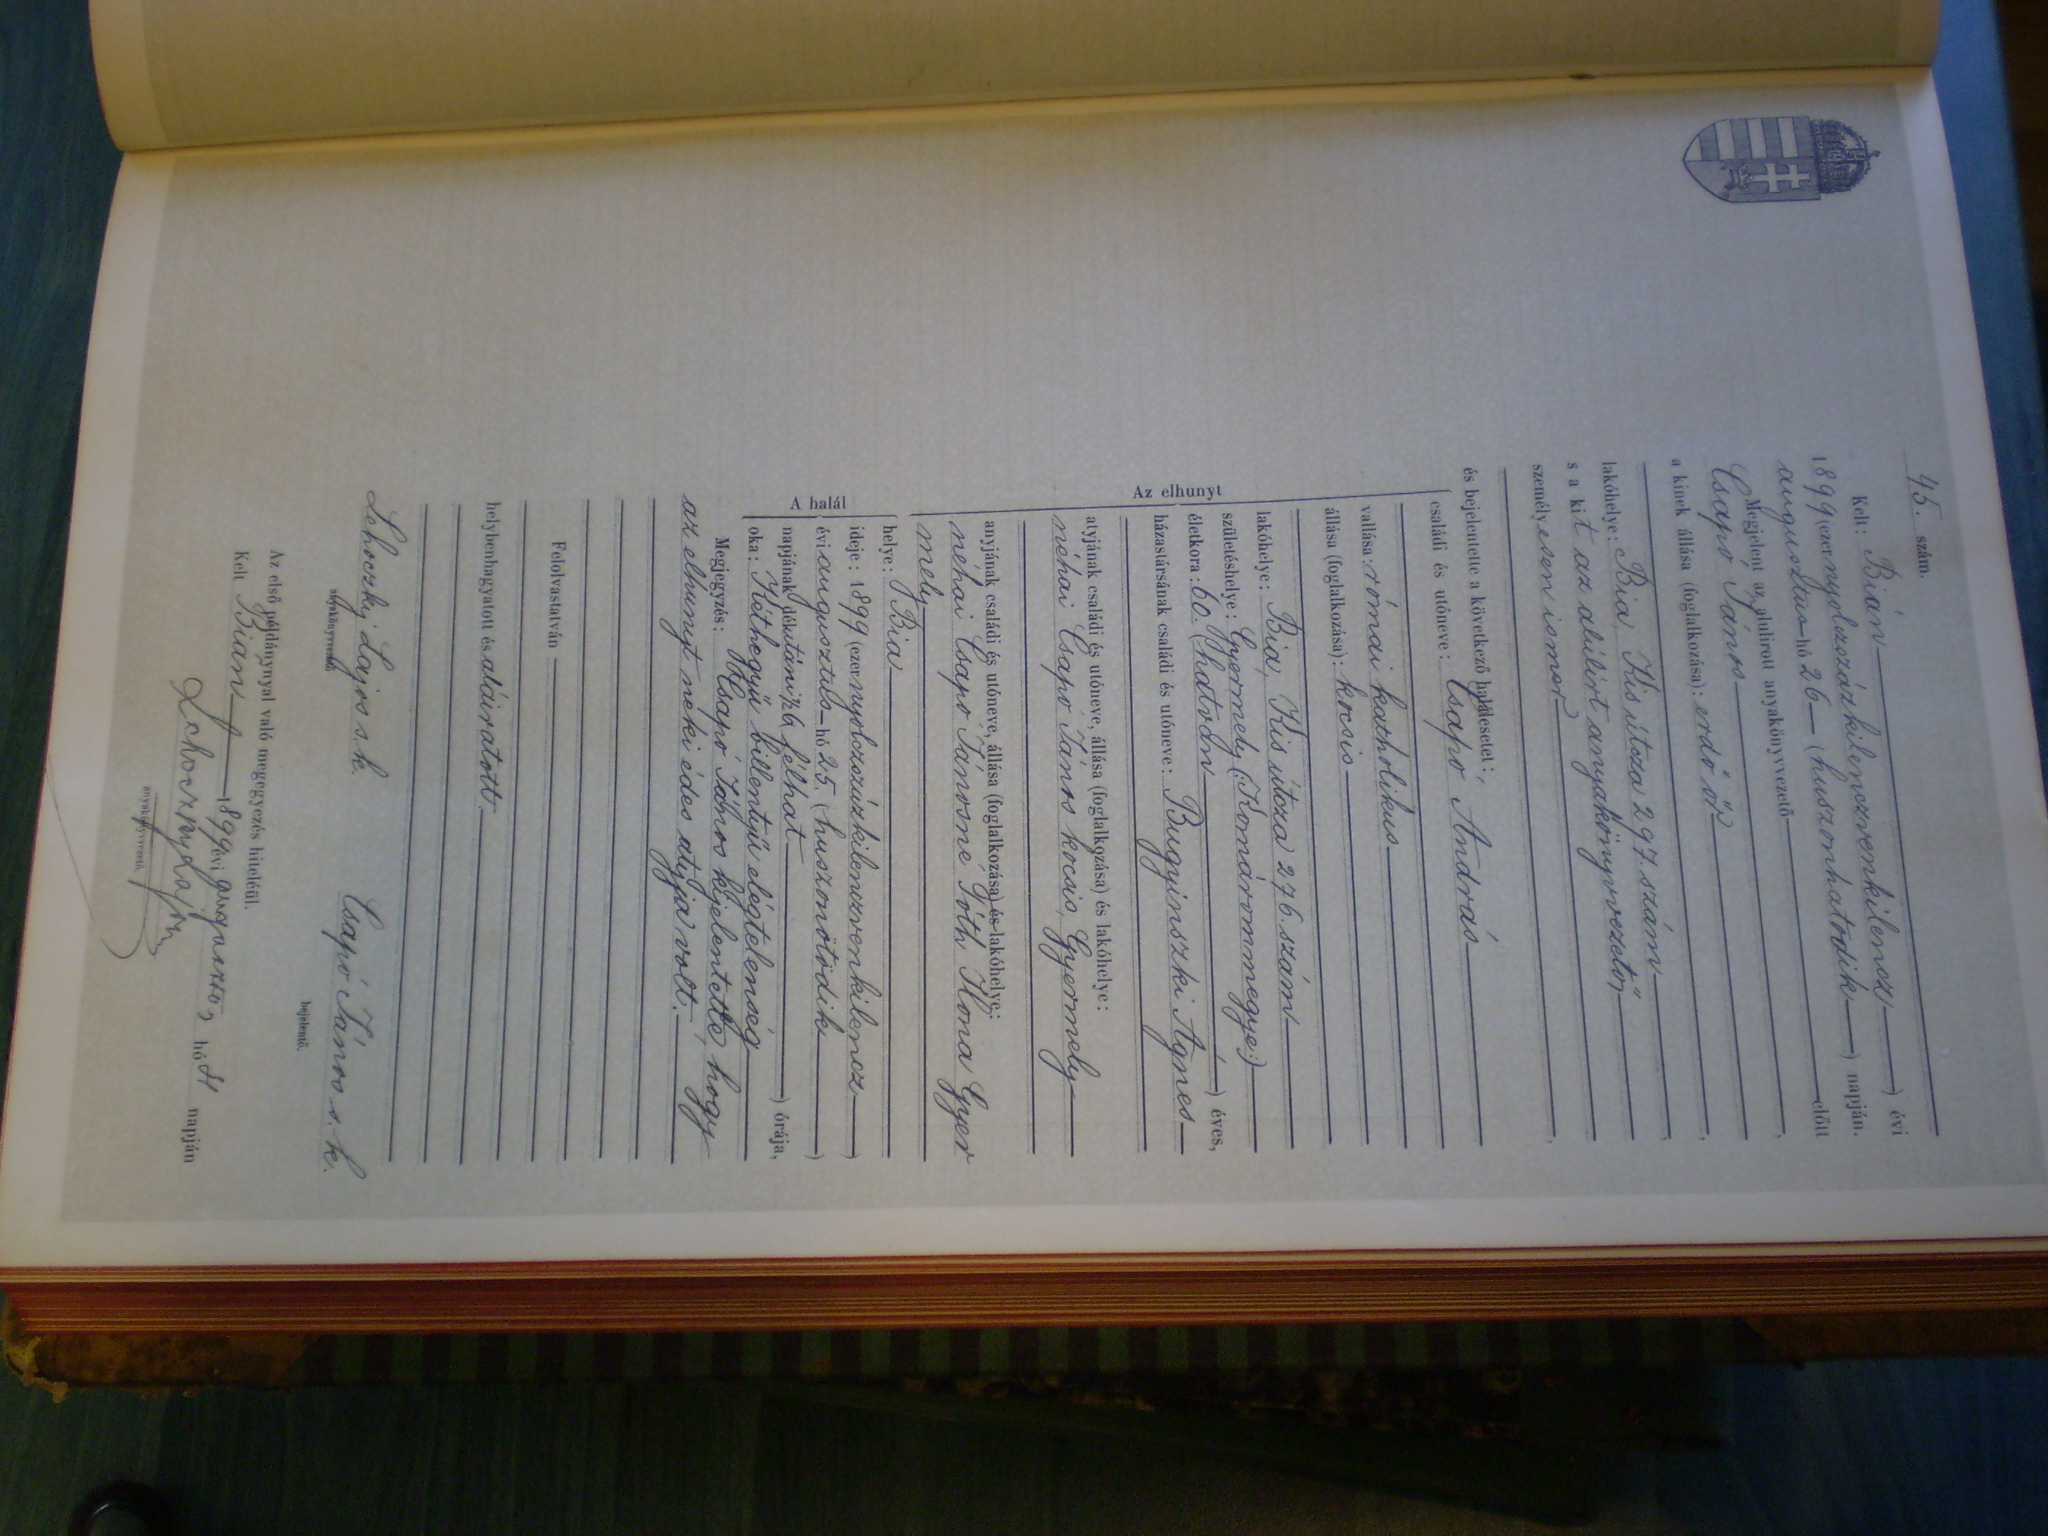 45. szám.
Kelt: Bián
1899 (ezernyolczszázkilenczvenkilencz) évi
augusztus hó 26 (huszonhatodik) napján.
Megjelent az alulirott anyakönyvvezető előtt
Csapó János
a kinek állása (foglalkozása): erdő őr
lakóhelye: Bia Kis útcza 297. szám
s a kit az alúlírt anyakönyvvezető
személyesen ismer,
és bejelentette a következő halálesetet:
családi és utóneve: Csapó András
Az elhunyt
vallása: római katholikus
állása (foglalkozása): kocsis
lakóhelye: Bia, Kis útcza 276. szám
születéshelye: Gyermely (:Komárommegye:)
életkora: 60. (hatvan) éves,
házastársának családi és utóneve: Buginszki Ágnes
atyjának családi és utóneve, állása (foglalkozása) és lakóhelye:
néhai Csapó János kocsis, Gyermely
anyjának családi és utóneve, állása (foglalkozása) és lakóhelye:
néhai Csapó Jánosné Tóth Ilona Gyer
mely
A halál
helye: Bia
ideje: 1899 (ezernyolczszázkilenczvenkilencz)
évi augusztus hó 25. (huszonötödik)
napjának délutáni 1/2 6 (félhat) órája,
oka: Kéthegyű billentyű elégtelenség
Megjegyzés: Csapó János kijelentette, hogy
az elhunyt neki édes atyja volt.
Felolvastatván
helybenhagyatott és aláiratott.
Lehoczky Lajos s. k. Csapó János s. k.
anyakönyvvezető bejelentő.
Az első példánynyal való megegyezés hiteléül.
Kelt Bián, 1899 évi augusztus hó 31 napján
Lehoczky Lajos
anyakönyvvezető.